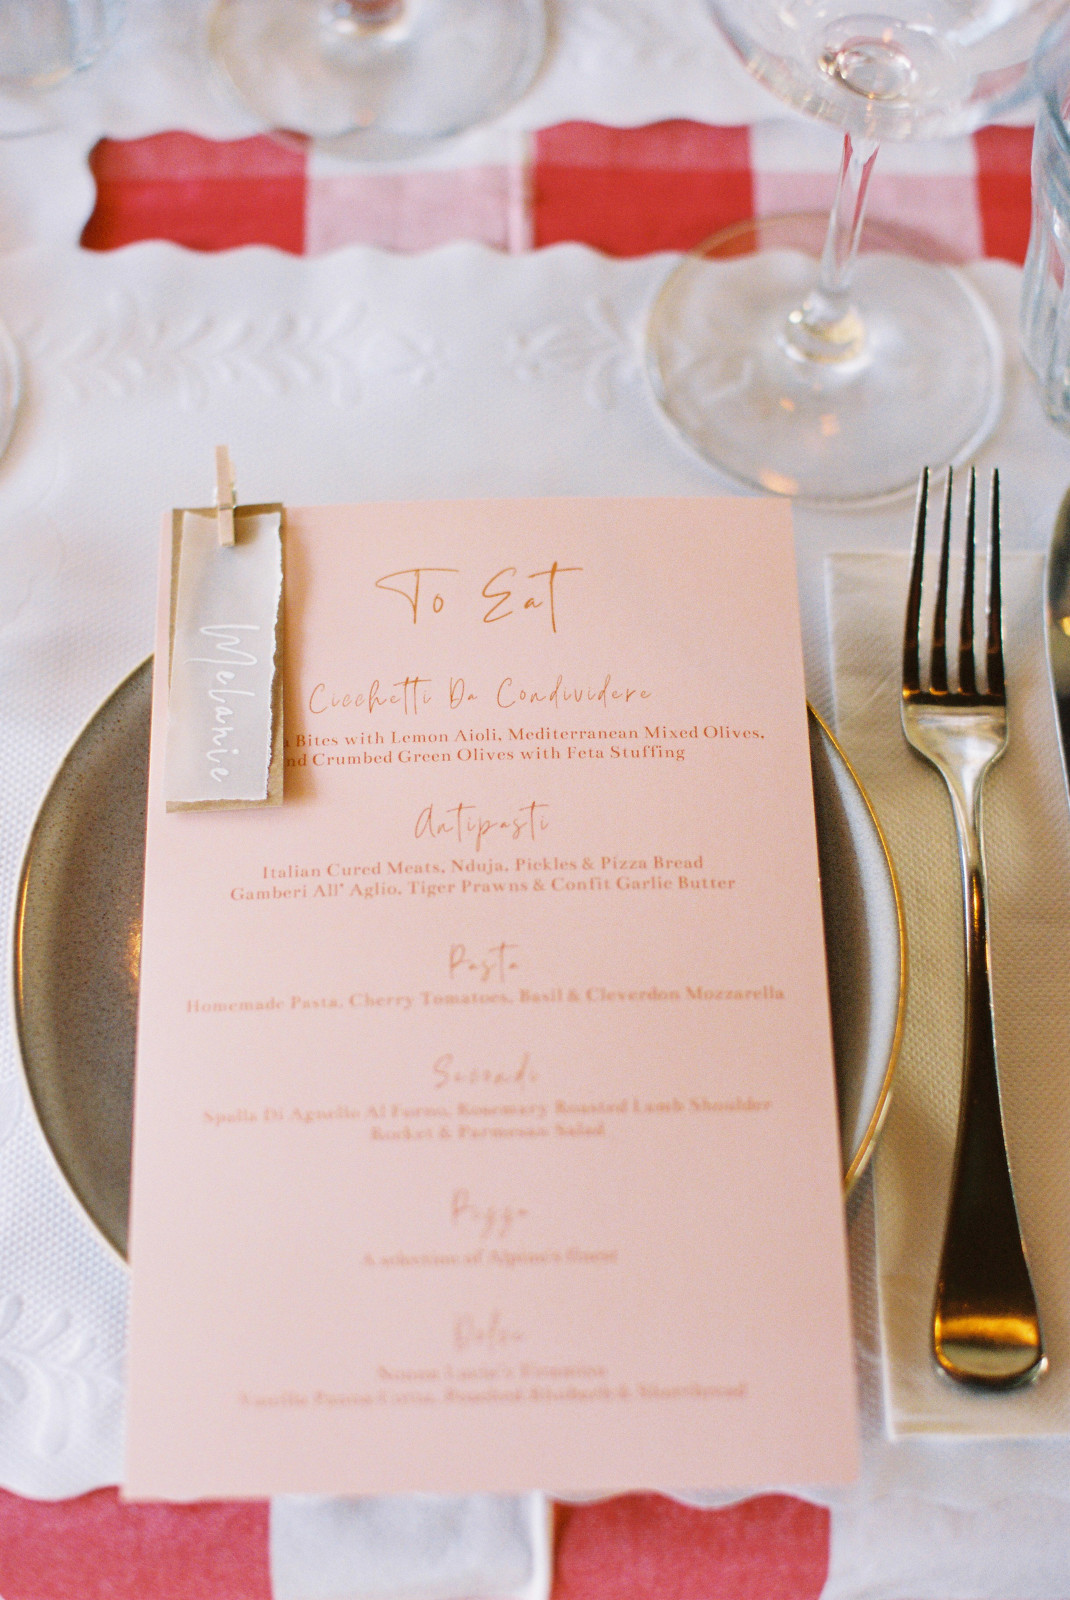 To Eat
Melanie
Cicchetti Da Condividere
Bites with Lemon Aioli, Mediterranean Mixed Olives,
Crumbed Green Olives with Feta Stuffing
Antipasti
Italian Cured Meats, Nduja, Pickles & Pizza Bread
Gamberi All' Aglio, Tiger Prawns & Confit Garlic Butter
Pasta
Homemade Pasta, Cherry Tomatoes, Basil & Cleverdon Mozzarella
Secondi
Spalla Di Agnello Al Forno, Rosemary Roasted Lamb Shoulder
Rocket & Parmesan Salad
Pizza
A selection of Alpino's finest
Dolce
Tiramisu
Vanilla Panna Cotta, Poached Rhubarb & Shortbread